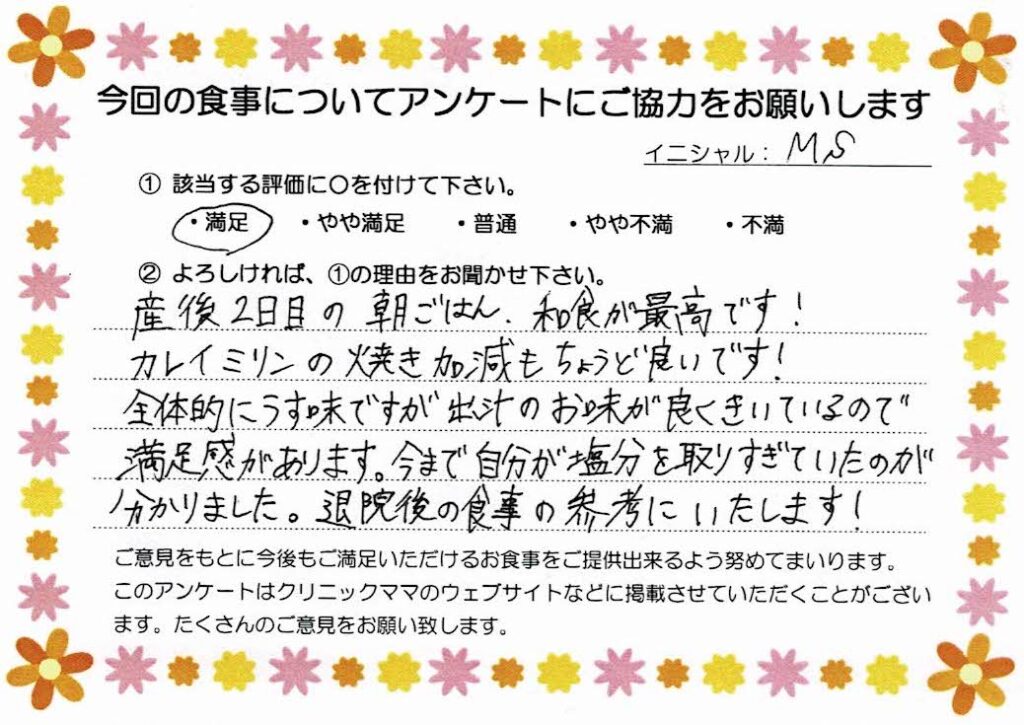 今回の食事についてアンケートにご協力をお願いします
イニシャル：MS
① 該当する評価に○を付けて下さい。
・満足 ・やや満足 ・普通 ・やや不満 ・不満
② よろしければ、①の理由をお聞かせ下さい。
産後2日目の朝ごはん、和食が最高です！
カレイミリンの焼き加減もちょうど良いです！
全体的にうす味ですが出汁のお味が良くきいているので
満足感があります。今まで自分が塩分を取りすぎていたのが
分かりました。退院後の食事の参考にいたします！
ご意見をもとに今後もご満足いただけるお食事をご提供出来るよう努めてまいります。
このアンケートはクリニックママのウェブサイトなどに掲載させていただくことがござい
ます。たくさんのご意見をお願い致します。